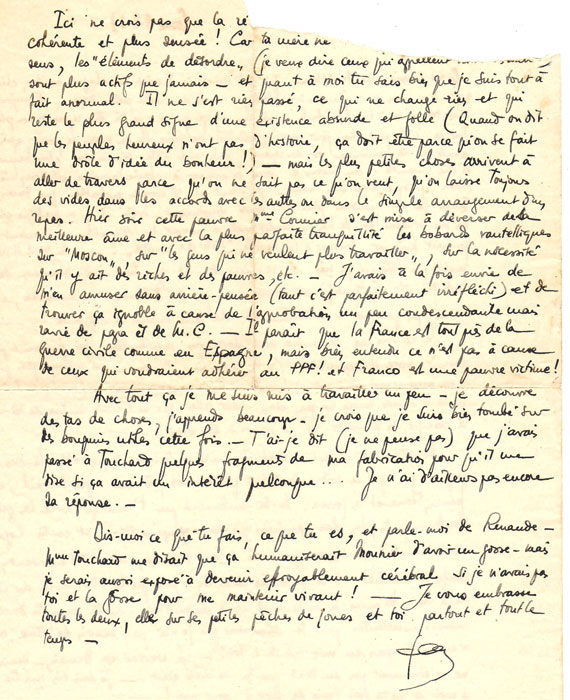 Ici ne crois pas que la ré
cohérente et plus sensée ! Car ta mère ne
sens, les "éléments de désordre" (je veux dire ceux qui appellent
sont plus actifs que jamais — et quant à moi tu sais bien que je suis tout à
fait anormal. Il ne s'est rien passé, ce qui ne change rien et qui
reste le plus grand signe d'une existence absurde et folle (Quand on dit
que les peuples heureux n'ont pas d'histoire, ça doit être parce qu'on se fait
une drôle d'idée du bonheur !) — mais les plus petites choses arrivent à
aller de travers parce qu'on ne sait pas ce qu'on veut, qu'on laisse toujours
des vides dans les accords avec les autres ou dans le simple arrangement d'un
repas. Hier soir cette pauvre Mme Cormier s'est mise à déverser de la
meilleure âme et avec la plus parfaite tranquillité les bobards
sur "Moscou", sur "les gens qui ne veulent plus travailler", sur la nécessité
qu'il y ait des riches et des pauvres, etc. — J'avais à la fois envie de
m'en amuser sans arrière-pensée (tant c'est parfaitement irréfléchi) et de
trouver ça ignoble à cause de l'approbation, un peu condescendante mais
ravie de papa et de M.C. — Il paraît que la France est tout près de la
guerre civile comme en Espagne, mais bien entendu ce n'est pas à cause
de ceux qui voudraient adhérer au PPF ! et Franco est une pauvre victime !
Avec tout ça je me suis mis à travailler un peu — je découvre
des tas de choses, j'apprends beaucoup — je crois que je suis bien tombé sur
des bouquins utiles cette fois. — T'ai-je dit (je ne pense pas) que j'avais
passé à Touchard quelques fragments de ma fabrication pour qu'il me
dise si ça avait un intérêt quelconque.... Je n'ai d'ailleurs pas encore
sa réponse. —
Dis-moi ce que tu fais, ce que tu es, et parle-moi de Renaude —
Mme Touchard me disait que ça humaniserait Mounier d'avoir un gosse — mais
je serais aussi exposé à devenir effroyablement cérébral si je n'avais pas
toi et la gosse pour me maintenir vivant ! — Je vous embrasse
toutes les deux, elle sur ses petites pêches de joues et toi partout et tout le
temps —